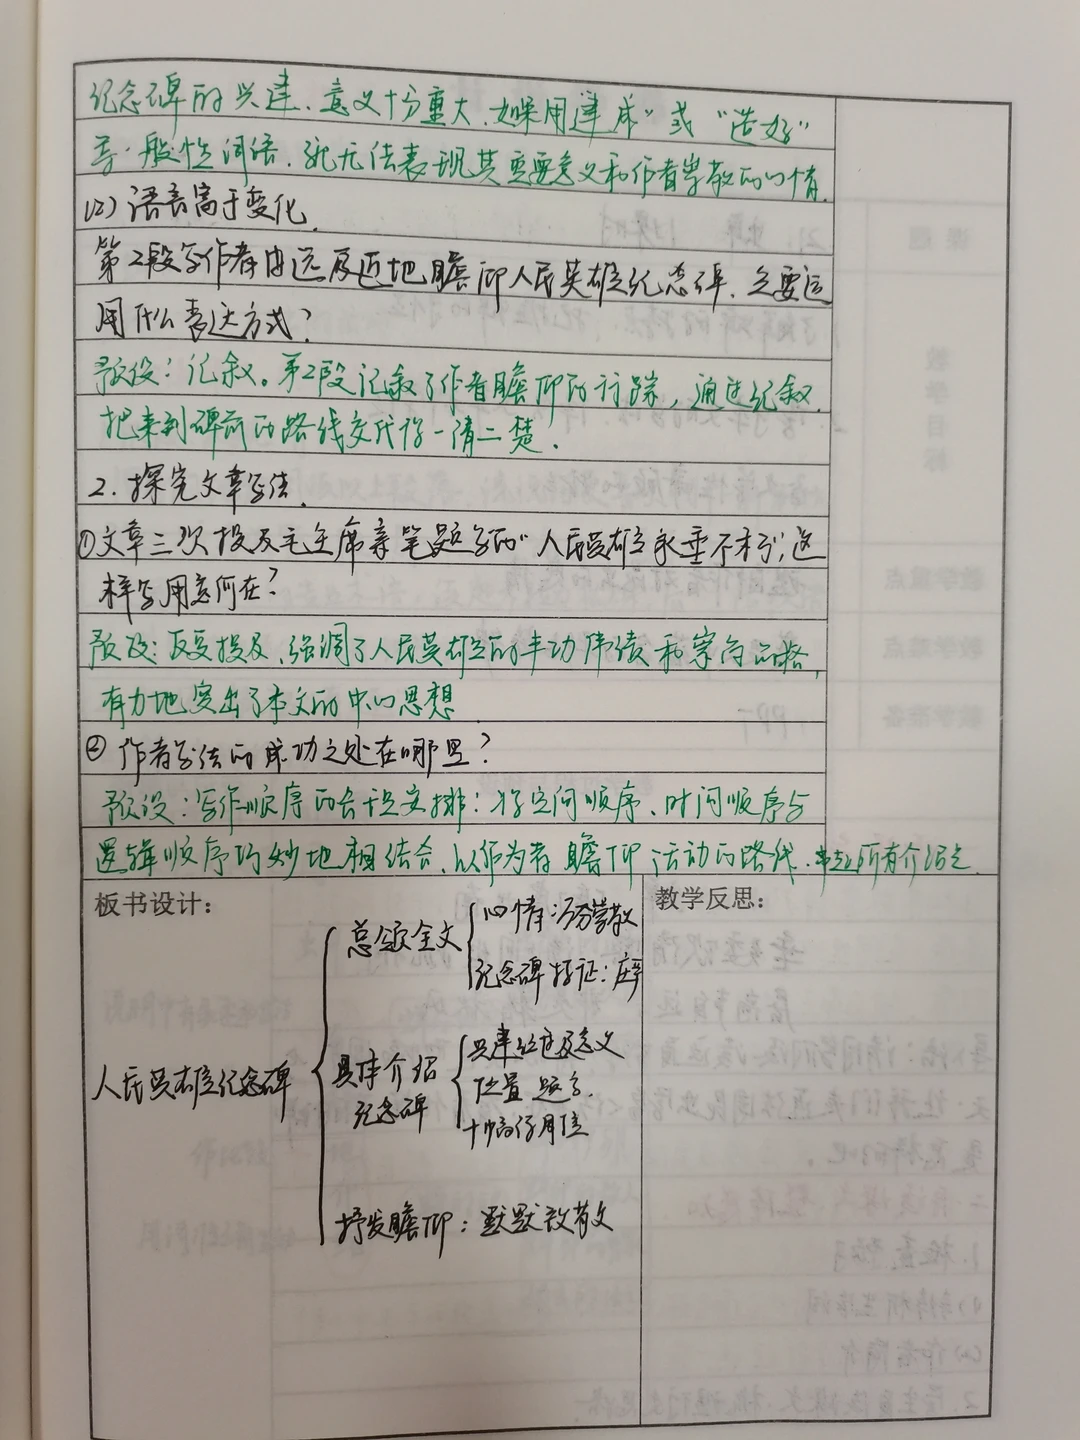 纪念碑的兴建，意义十分重大，如果用“建成”或“造好”
等一般性词语，就无法表现其重要意义和作者崇敬的心情.
(2) 语言富于变化.
第2段写作者由远及近地瞻仰人民英雄纪念碑，主要运
用什么表达方式？
预设：记叙。第2段记叙了作者瞻仰的行踪，通过纪叙，
把来到碑前的路线交代得一清二楚.
2. 探究文章写法.
①文章三次提及毛主席亲笔题写的“人民英雄永垂不朽”，这
样写用意何在？
预设：反复提及，强调了人民英雄的丰功伟绩和崇高品格，
有力地突出了本文的中心思想
② 作者写法的成功之处在哪里？
预设：写作顺序的合理安排：将空间顺序、时间顺序与
逻辑顺序巧妙地相结合，以作者瞻仰活动的路线，串起所有介绍点.
板书设计：
教学反思：
人民英雄纪念碑
总领全文
心情：万分崇敬
纪念碑特征：庄严
具体介绍
纪念碑
兴建经过及意义
位置 题字.
十幅浮雕
抒发瞻仰：默默致敬